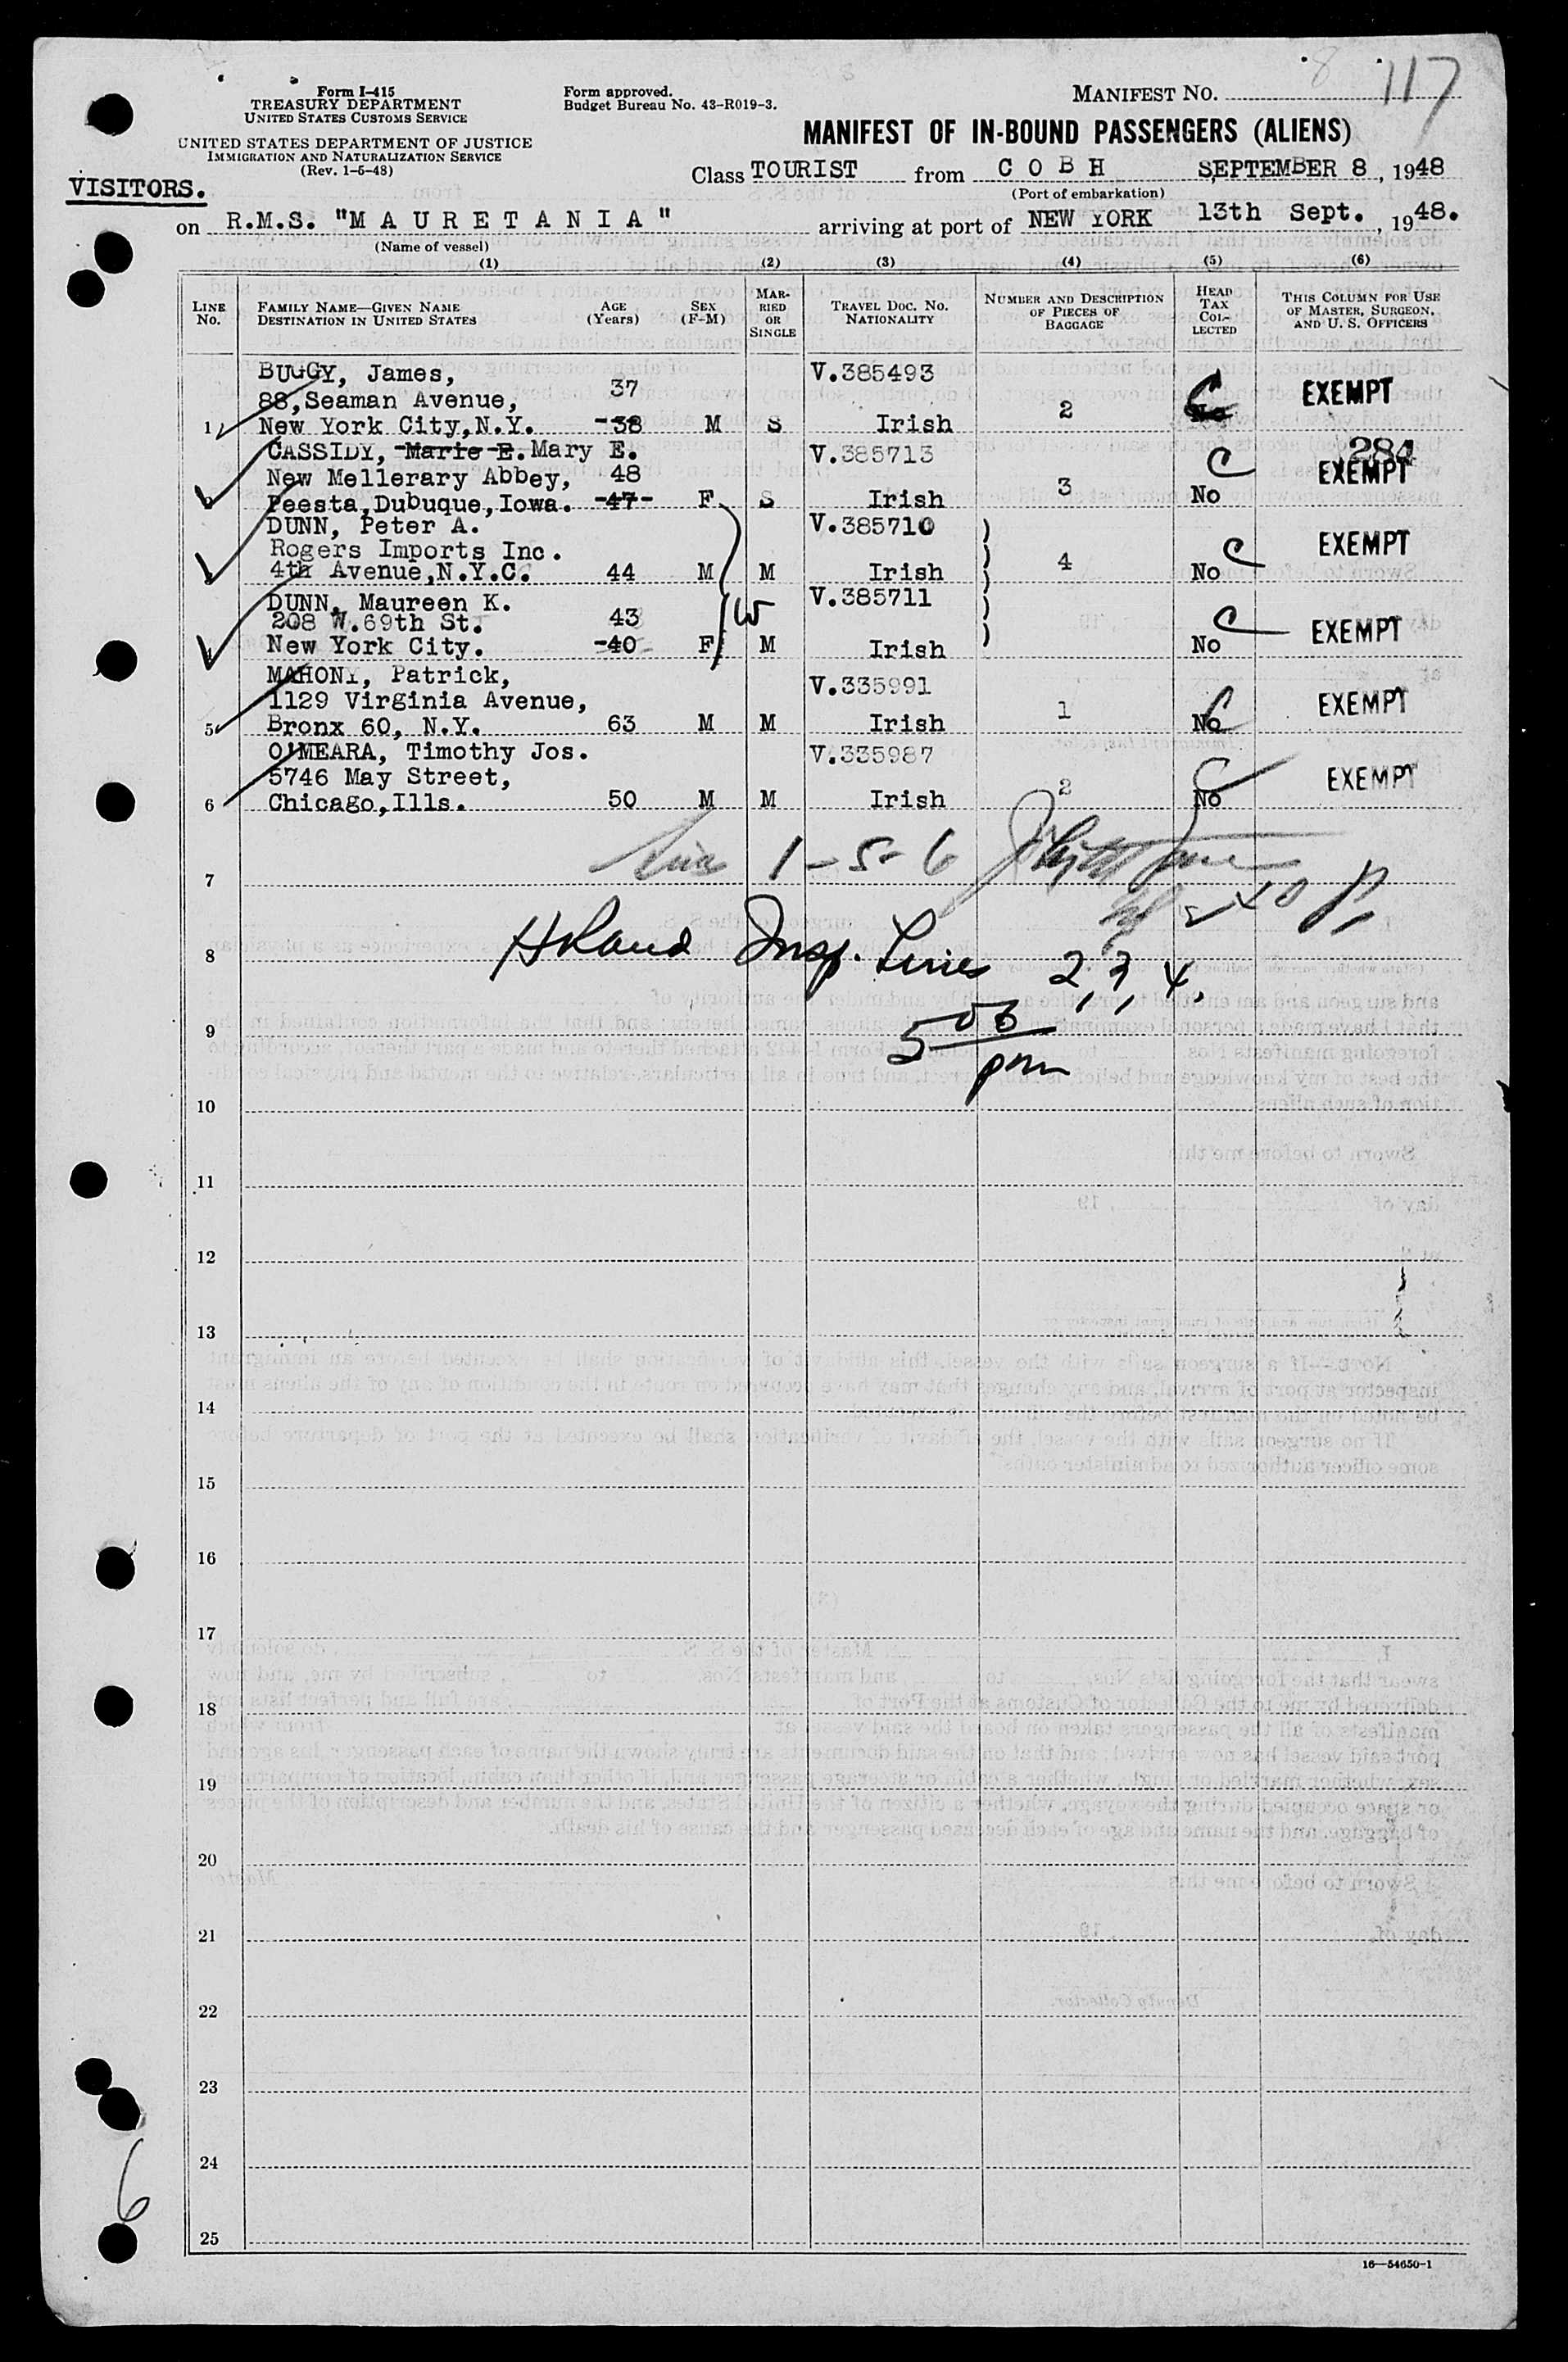 117
Form I-415
TREASURY DEPARTMENT
UNITED STATES CUSTOMS SERVICE
Form approved.
Budget Bureau No. 43-R019-3.
MANIFEST NO.
UNITED STATES DEPARTMENT OF JUSTICE
IMMIGRATION AND NATURALIZATION SERVICE
(Rev. 1-5-48)
MANIFEST OF IN-BOUND PASSENGERS (ALIENS)
VISITORS.
Class TOURIST from COBH SEPTEMBER 8, 1948
(Port of embarkation)
on R.M.S. "MAURETANIA" arriving at port of NEW YORK 13th Sept., 1948.
(Name of vessel)
(1) (2) (3) (4) (5) (6)
LINE No.
FAMILY NAME—GIVEN NAME
DESTINATION IN UNITED STATES
AGE (Years)
SEX (F-M)
MARRIED OR SINGLE
TRAVEL DOC. NO.
NATIONALITY
NUMBER AND DESCRIPTION OF PIECES OF BAGGAGE
HEAD TAX COLLECTED
THIS COLUMN FOR USE OF MASTER, SURGEON, AND U. S. OFFICERS
BUGGY, James, V.385493
88,Seaman Avenue, 37 2 C EXEMPT
1 New York City,N.Y. 38 M S Irish No
CASSIDY, Marie E. Mary E. V.385713 284
New Mellerary Abbey, 48 3 C EXEMPT
2 Peesta,Dubuque,Iowa. 47 F S Irish No
DUNN, Peter A. V.385710
Rogers Imports Inc. 4 C EXEMPT
4th Avenue,N.Y.C. 44 M M Irish No
DUNN, Maureen K. V.385711
208 W.69th St. 43 W C EXEMPT
4 New York City. 40 F M Irish No
MAHONY, Patrick, V.335991
1129 Virginia Avenue, 1 C EXEMPT
5 Bronx 60, N.Y. 63 M M Irish No
O'MEARA, Timothy Jos. V.335987
5746 May Street, 2 C EXEMPT
6 Chicago,Ills. 50 M M Irish No
1-5-6
7
240 P
8
Insp. Lines 2, 3, 4,
9
5 05
pm
10
11
12
13
14
15
16
17
18
19
20
21
22
23
24
6
25
16—54650-1